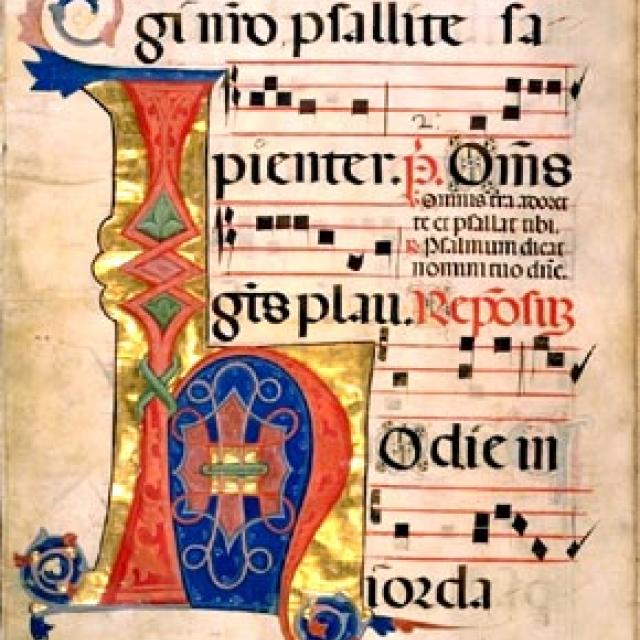 gi nr̄o psallite sa
2.
pienter. p̄. Om̄s
V Omnis tr̄a adoret
te et psallat tibi.
R Psalmum dicat
nomini tuo dn̄e.
gt̄s plau. Repōsuȝ
H Odie in
iorda